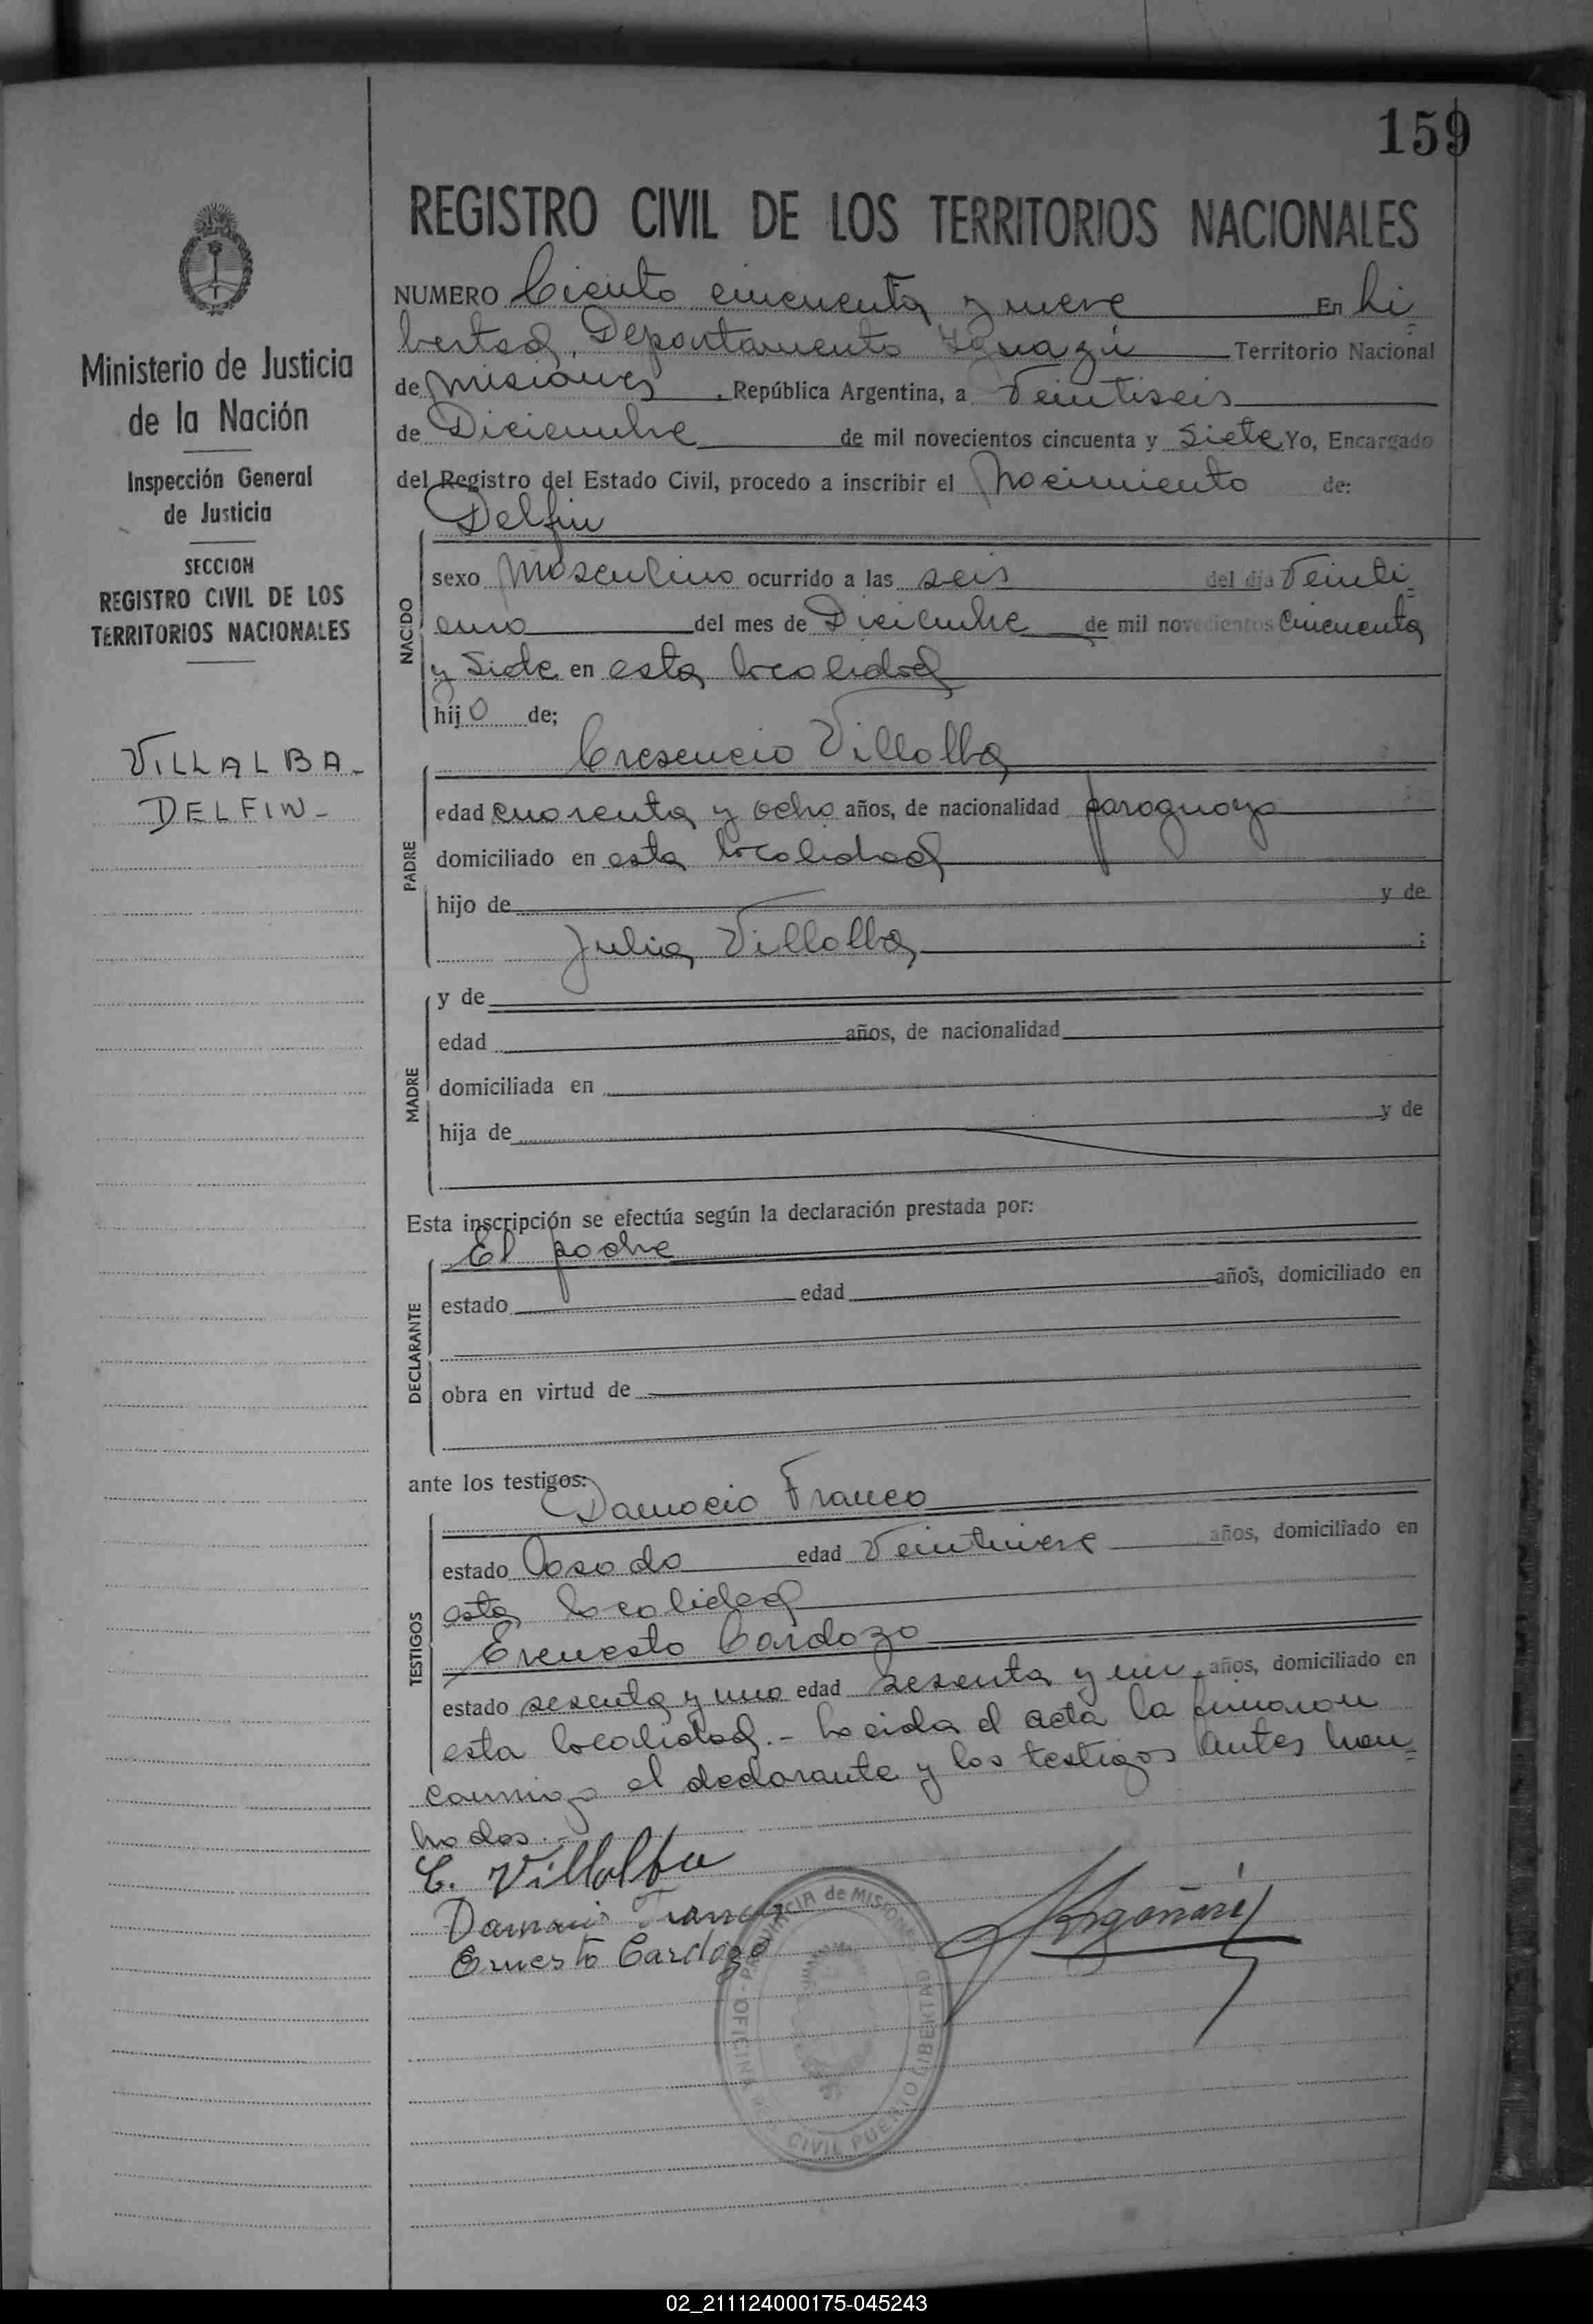 159
REGISTRO CIVIL DE LOS TERRITORIOS NACIONALES
Ministerio de Justicia
de la Nación
Inspección General
de Justicia
SECCION
REGISTRO CIVIL DE LOS
TERRITORIOS NACIONALES
VILLALBA-
DELFIN-
NUMERO Ciento cincuenta y nueve En Li=
bertad, Departamento Iguazú Territorio Nacional
de Misiones, República Argentina, a Veintiseis
de Diciembre de mil novecientos cincuenta y Siete Yo, Encargado
del Registro del Estado Civil, procedo a inscribir el Nacimiento de:
Delfin
NACIDO
sexo Masculino ocurrido a las seis del día Veinti=
uno del mes de Diciembre de mil novecientos Cincuenta
y Siete en esta localidad
hijo de;
Cresencio Villalba
PADRE
edad cuarenta y ocho años, de nacionalidad paraguaya
domiciliado en esta localidad
hijo de y de
Julia Villalba ;
MADRE
y de
edad años, de nacionalidad
domiciliada en
hija de y de
Esta inscripción se efectúa según la declaración prestada por:
El padre
DECLARANTE
estado edad años, domiciliado en
obra en virtud de
ante los testigos:
Damacio Franco
TESTIGOS
estado Casado edad Veintinueve años, domiciliado en
esta localidad
Ernesto Cardozo
estado sesenta y uno edad Sesenta y un años, domiciliado en
esta localidad.- Leeida el acta la firmaron
conmigo el declarante y los testigos antes nom=
brados.-
C. Villalba
Damacio Franco
Ernesto Cardozo
PROVINCIA de MISIONES
OFICINA REG. CIVIL PUERTO LIBERTAD
02_211124000175-045243